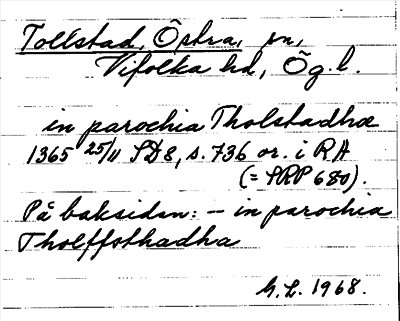 Tollstad, Östra, sn,
Vifolka hd, Ög. l.
in parochia Tholstadhæ
1365 25/11 SD 8, s. 736 or. i RA
(= SRP 680).
På baksidan: – in parochia
Tholffsthadha
G. L. 1968.